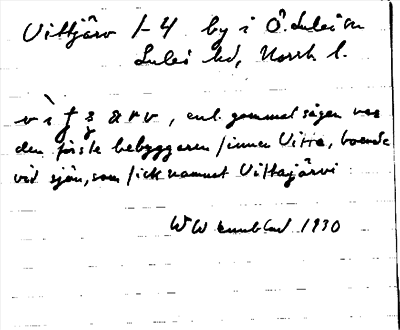 Vittjärv 1-4 by i Ö. Luleå sn
Luleå hd, Norrb l.
enl. gammal sägen var
den förste bebyggaren finnen Vitta, boende
vid sjön, som fick namnet Vittajärvi
1930